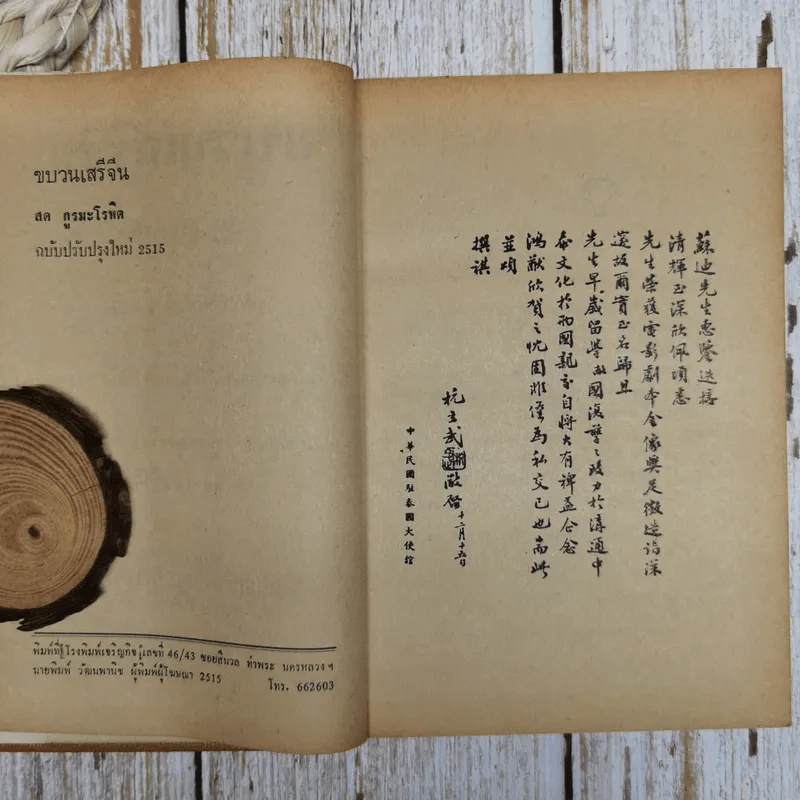 ขบวนเสรีจีน
สด กูรมะโรหิต
ฉบับปรับปรุงใหม่ 2515
พิมพ์ที่ โรงพิมพ์เจริญกิจ เลขที่ 46/43 ซอยสีนวล ท่าพระ นครหลวง ฯ
นายพิมพ์ วัฒนพานิช ผู้พิมพ์ผู้โฆษณา 2515 โทร. 662603
蘇迪先生惠鑒迭接
清輝至深欣佩頃悉
先生榮獲電影劇本金像獎足徵造詣深
邃故爾實至名歸且
先生早歲留學敝國致力於溝通中
泰文化於兩國親善自將大有裨益公念
鴻猷欣賀之忱固非僅為私交已也耑此
並頌
撰祺
杭立武 敬啓 十二月十五日
中華民國駐泰國大使館